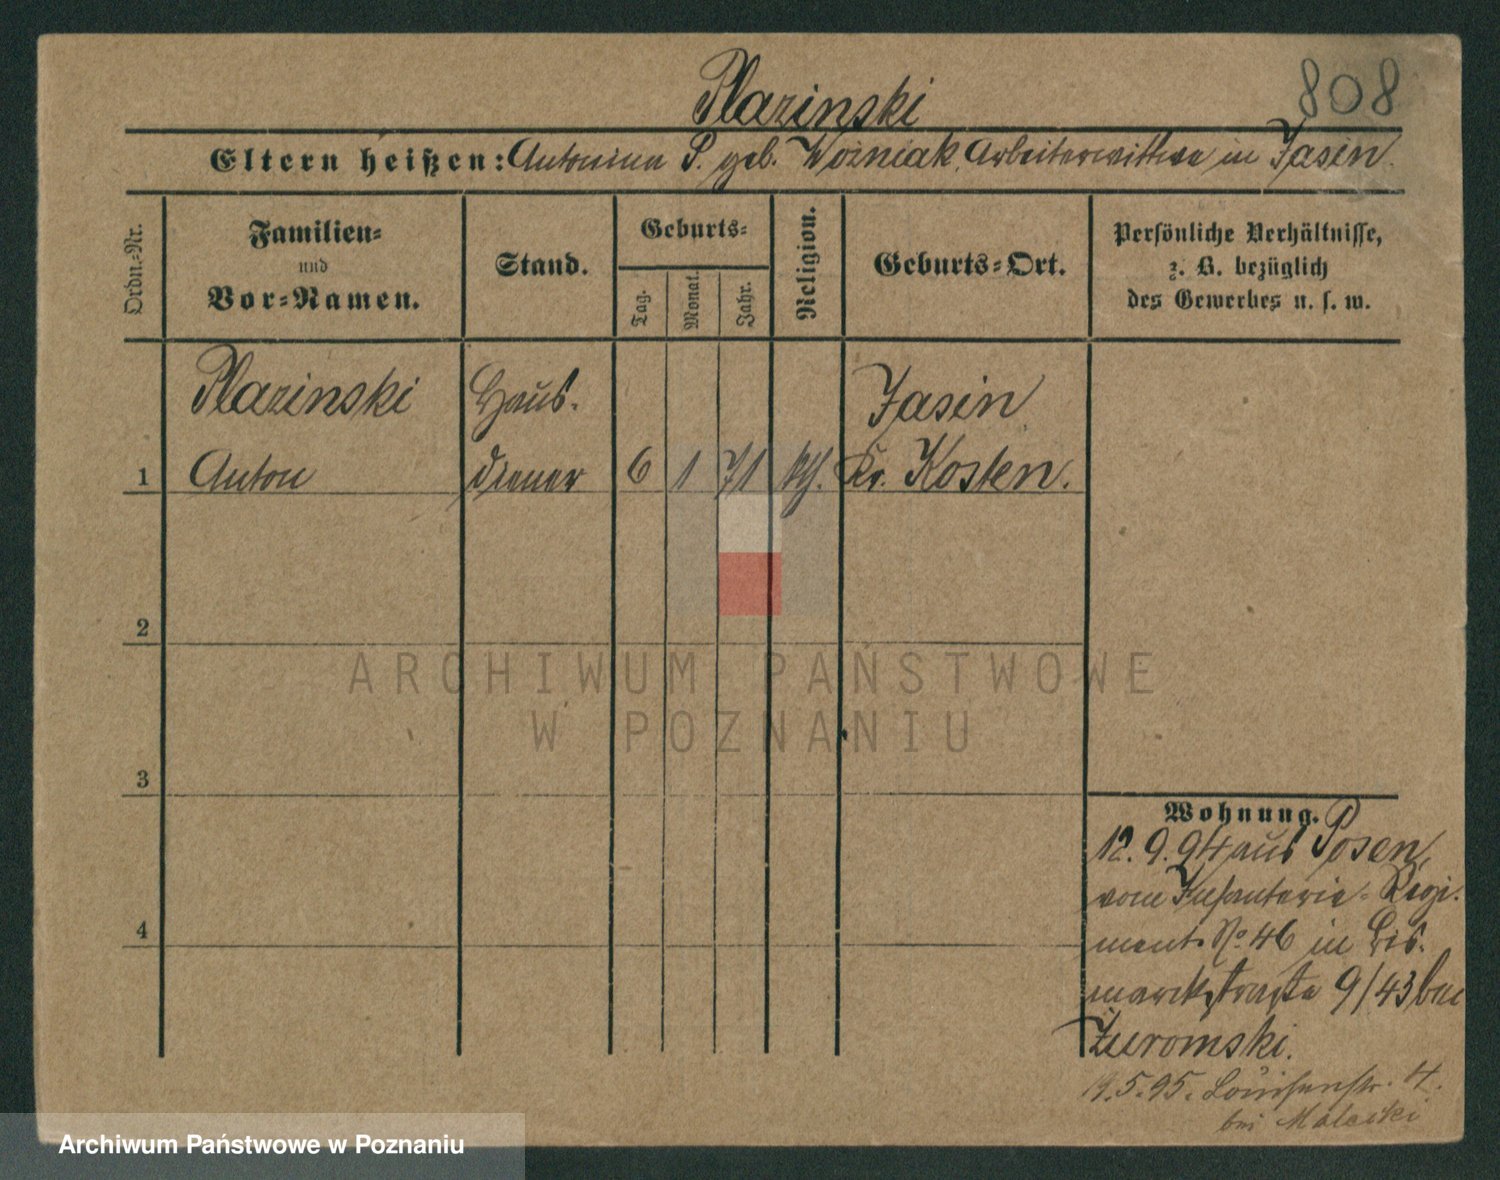 Plazinski
808
Eltern heißen: Antonina P. geb. Woźniak, Arbeiterwittwe in Jasin.
Ordn.-Nr.
Familien-
und
Vor-Namen.
Stand.
Geburts-
Tag.
Monat.
Jahr.
Religion.
Geburts-Ort.
Persönliche Verhältnisse,
z. B. bezüglich
des Gewerbes u. s. w.
Plazinski Haus- Jasin
1 Anton diener 6 1 71 kth. Kr. Kosten.
2
ARCHIWUM PAŃSTWOWE
W POZNANIU
3
4
Wohnung.
12. 9. 94 aus Posen,
vom Infanterie-Regi-
ment No 46 in Bis-
marckstraße 9/43 bei
Żuromski.
19. 5. 95. Louisenstr. 4.
bei Malecki
Archiwum Państwowe w Poznaniu